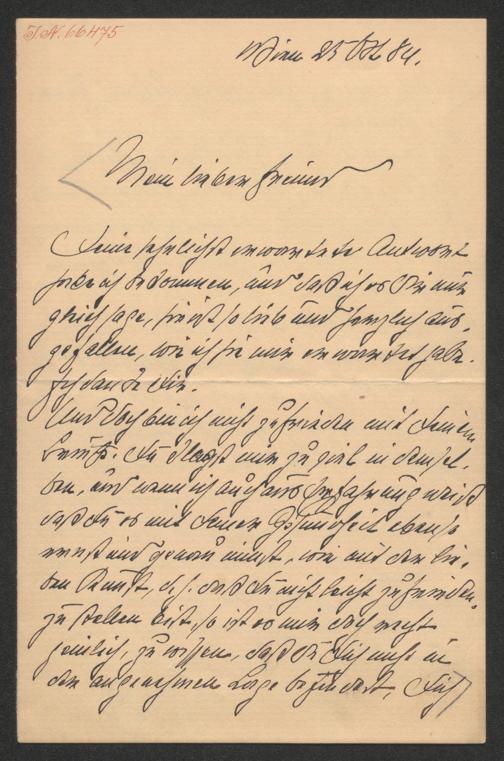 I.N. 66475
Wien 25 Okt 84.
Mein lieber Freund
Deine sehnlichst erwartete Antwort
habe ich bekommen, und daß ich es Dir nur
gleich sage, sie ist so lieb und herzlich aus-
gefallen, wie ich sie mir erwartet habe.
Ich danke Dir.
Und doch bin ich nicht zufrieden mit Deinem
Briefe. Du klagst mir zu viel in demsel-
ben, und wenn ich auch aus Erfahrung weiß
daß Du es mit Deiner Gesundheit ebenso
ernst und genau nimmst, wie mit der lie-
ben Kunst, d.h. daß Du nicht leicht zufrieden-
zustellen bist, so ist es mir doch recht
peinlich, zu wissen, daß Du Dich nicht in
der angenehmen Lage befindest, Dich